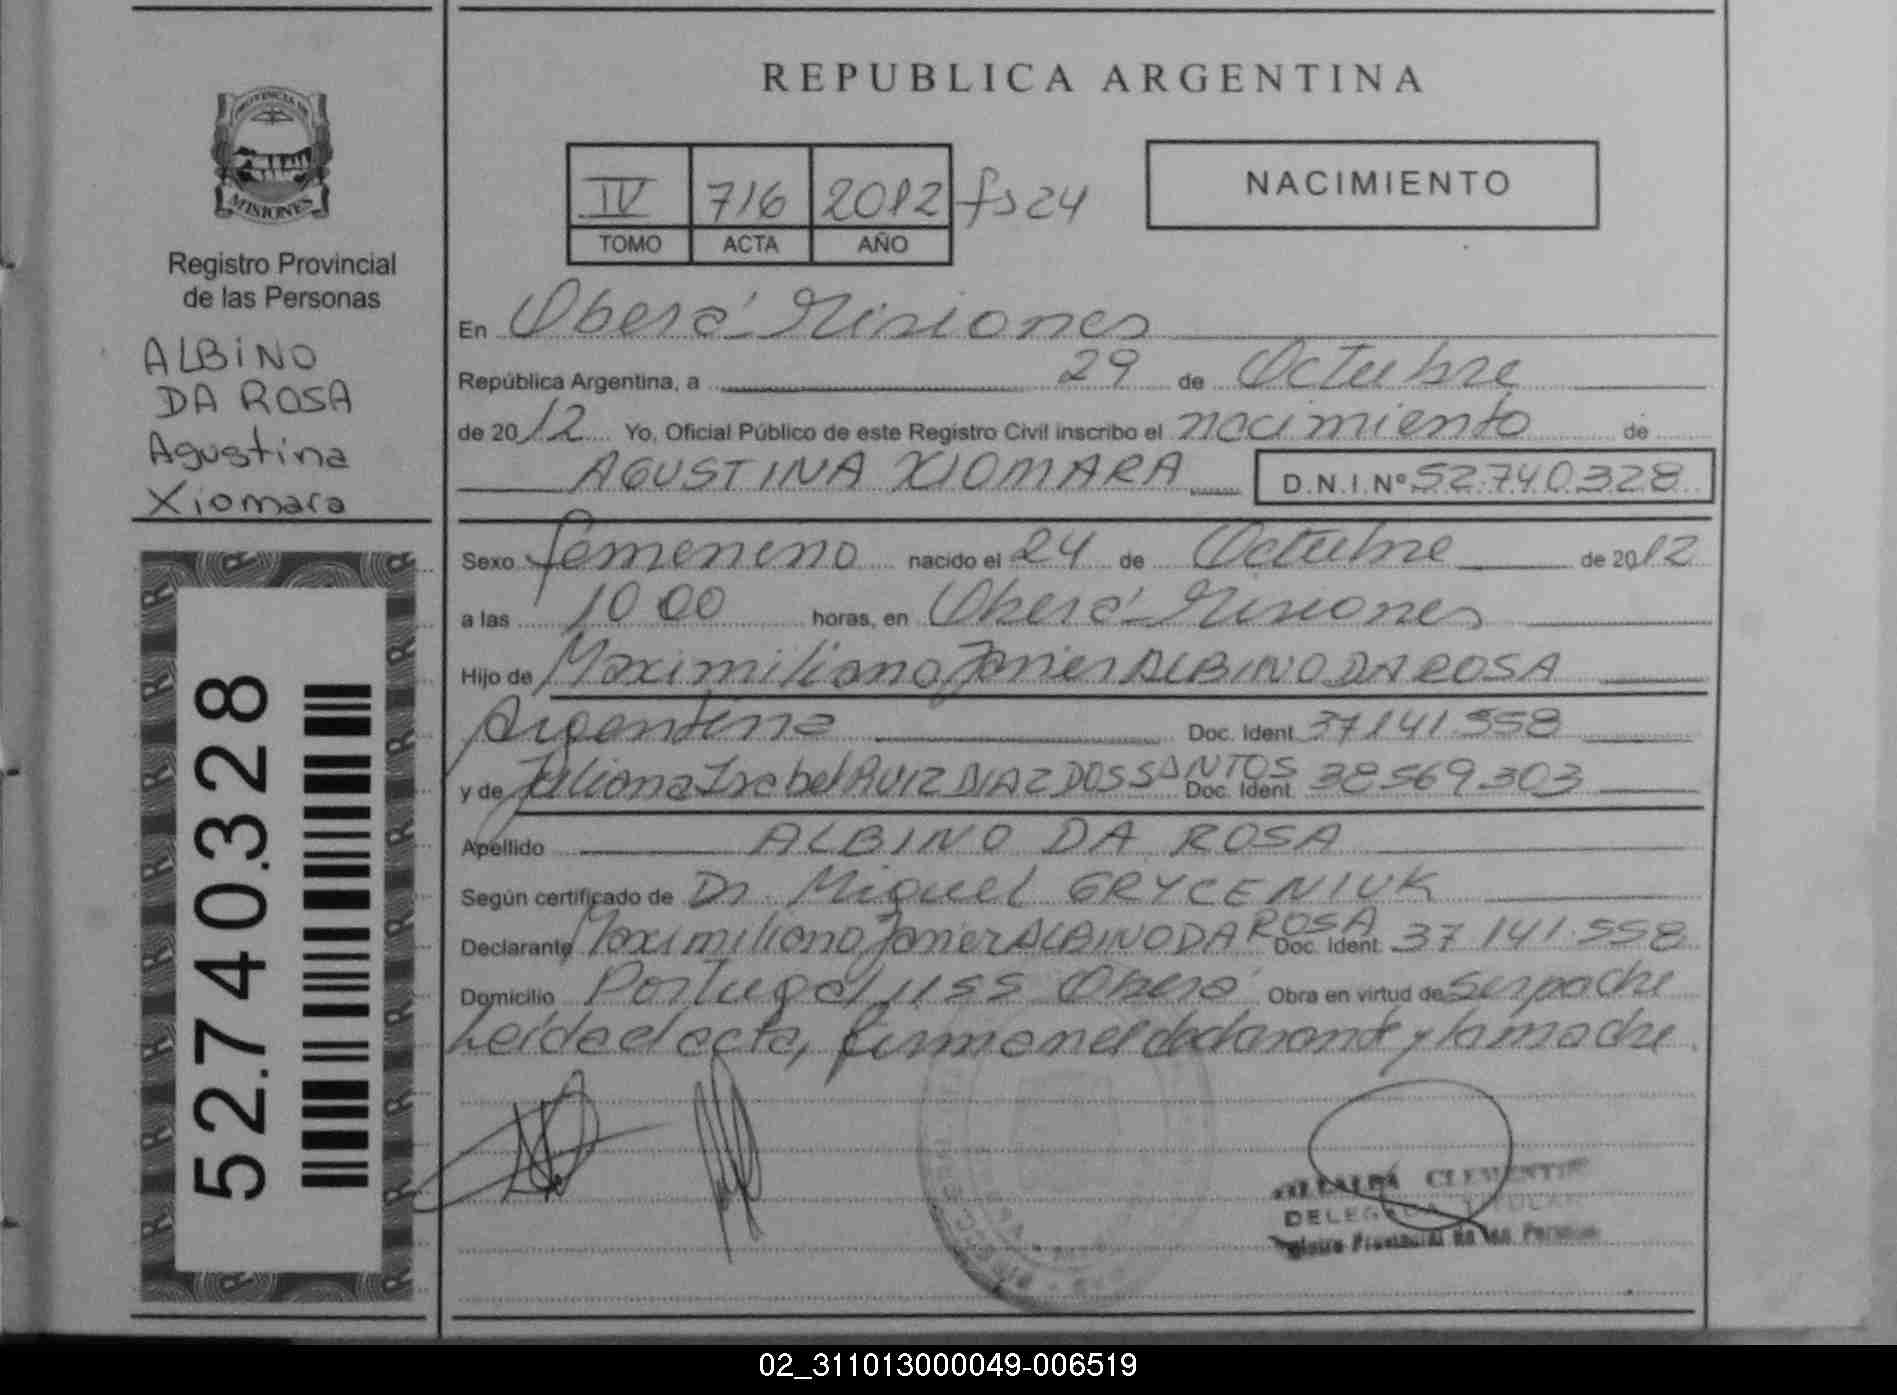 REPUBLICA ARGENTINA
PROVINCIA DE
MISIONES
Registro Provincial
de las Personas
ALBINO
DA ROSA
Agustina
Xiomara
52.740.328
IV 716 2012 fs 24
TOMO ACTA AÑO
NACIMIENTO
En Oberá Misiones
República Argentina, a 29 de Octubre
de 2012 Yo, Oficial Público de este Registro Civil inscribo el nacimiento de
AGUSTINA XIOMARA D.N.I. Nº 52.740.328
Sexo femenino nacido el 24 de Octubre de 2012
a las 10 00 horas, en Oberá Misiones
Hijo de Maximiliano Javier ALBINO DA ROSA
Argentina Doc. Ident. 37141.558
y de Juliana Isabel RUIZ DIAZ DOS SANTOS Doc. Ident. 38569.303
Apellido ALBINO DA ROSA
Según certificado de Dr. Miguel GRYCENIUK
Declarante Maximiliano Javier ALBINO DA ROSA Doc. Ident. 37 141.558
Domicilio Portugal Oberá Obra en virtud de Ser padre
Leída el acta, firman el declarante y la madre.
CLEMENTIN
DELEGADA TITULAR
Registro Provincial de las Personas
02_311013000049-006519